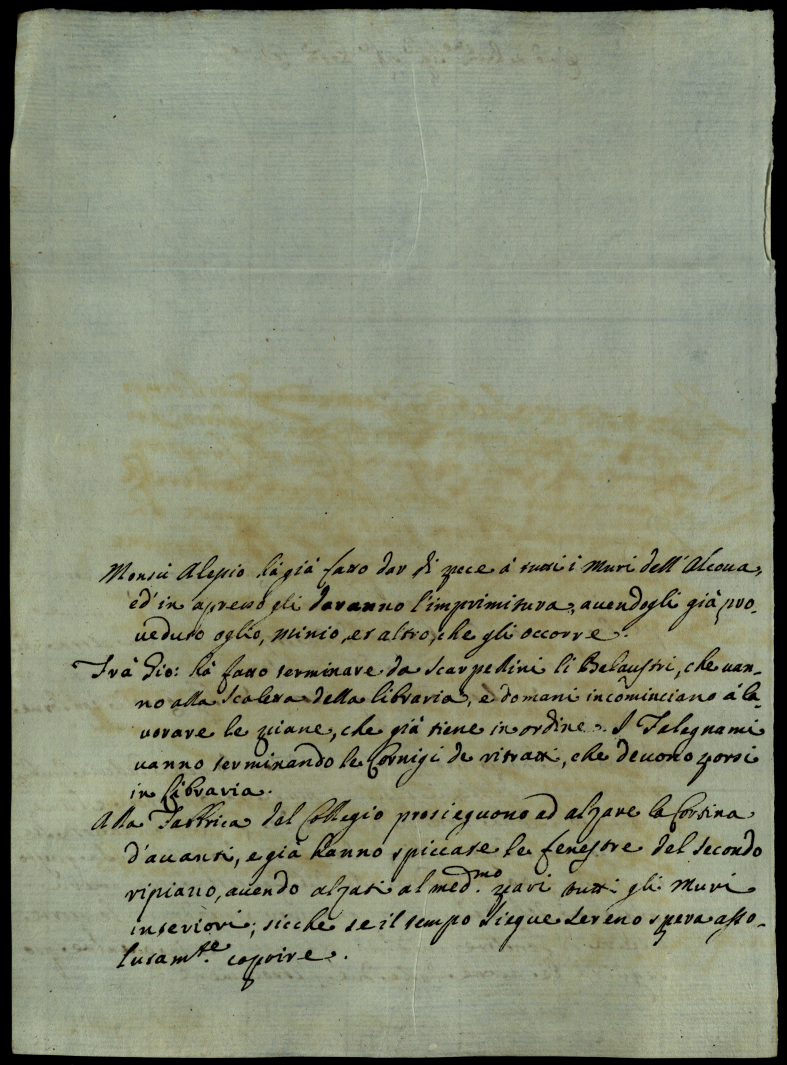 Monsù Alessio hà già fatto dar di pece à tutti i muri dell'Alcova,
ed'in apresso gli daranno l'imprimitura, avendogli già pro-
veduto oglio, minio, et altro, che gli occorre.
Frà Gio: hà fatto terminare da Scarpellini li Balaustri, che van-
no alla Scaletta della libraria, e domani incominciano à la-
vorare le piane, che già tiene in ordine. I Falegnami
vanno terminando le Cornigi de ritratti, che devono porsi
in Libraria.
Alla Fabbrica del Collegio prosieguono ad alzare la Cortina
d'avanti, e già hanno spiccate le fenestre del secondo
ripiano, avendo alzati al med.mo pari tutti gli muri
interiori; sicche se il tempo siegue sereno spera asso-
lutam.te coprire.